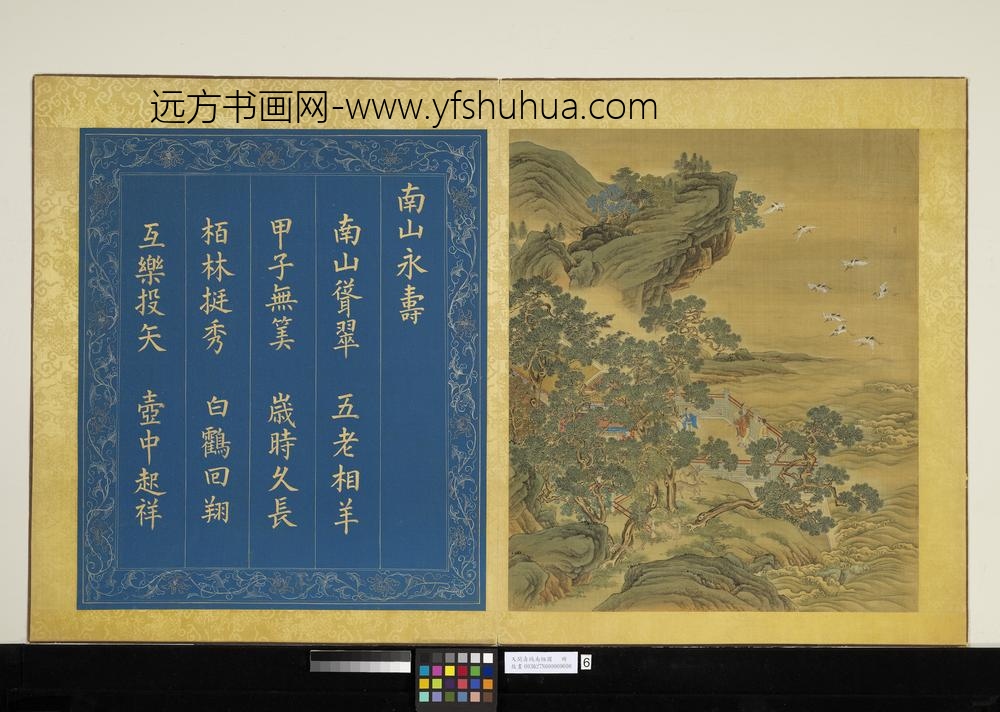 远方书画网-www.yfshuhua.com
南山永壽
南山聳翠 五老相羊
甲子無筭 歲時久長
栢林挺秀 白鶴回翔
互樂投矢 壺中起祥
6